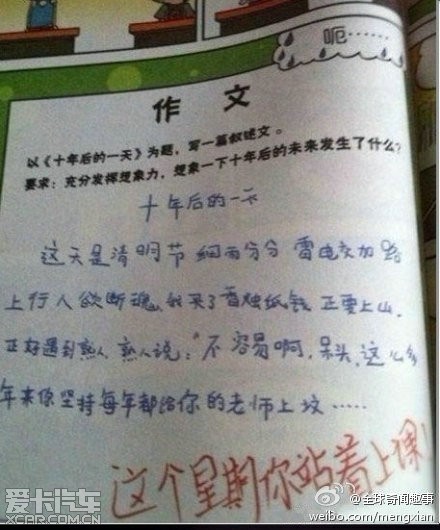 呃……
作 文
以《十年后的一天》为题，写一篇叙述文。
要求：充分发挥想象力，想象一下十年后的未来发生了什么？
十年后的一天
这天是清明节 细雨分分 雷电交加 路
上行人欲断魂，我买了香烛纸钱 正要上山，
正好遇到熟人，熟人说：“不容易啊，呆头，这么多
年来你坚持每年都给你的老师上坟……
这个星期你站着上课！
爱卡汽车
XCAR.COM.CN
@全球奇闻趣事
weibo.com/mengxian